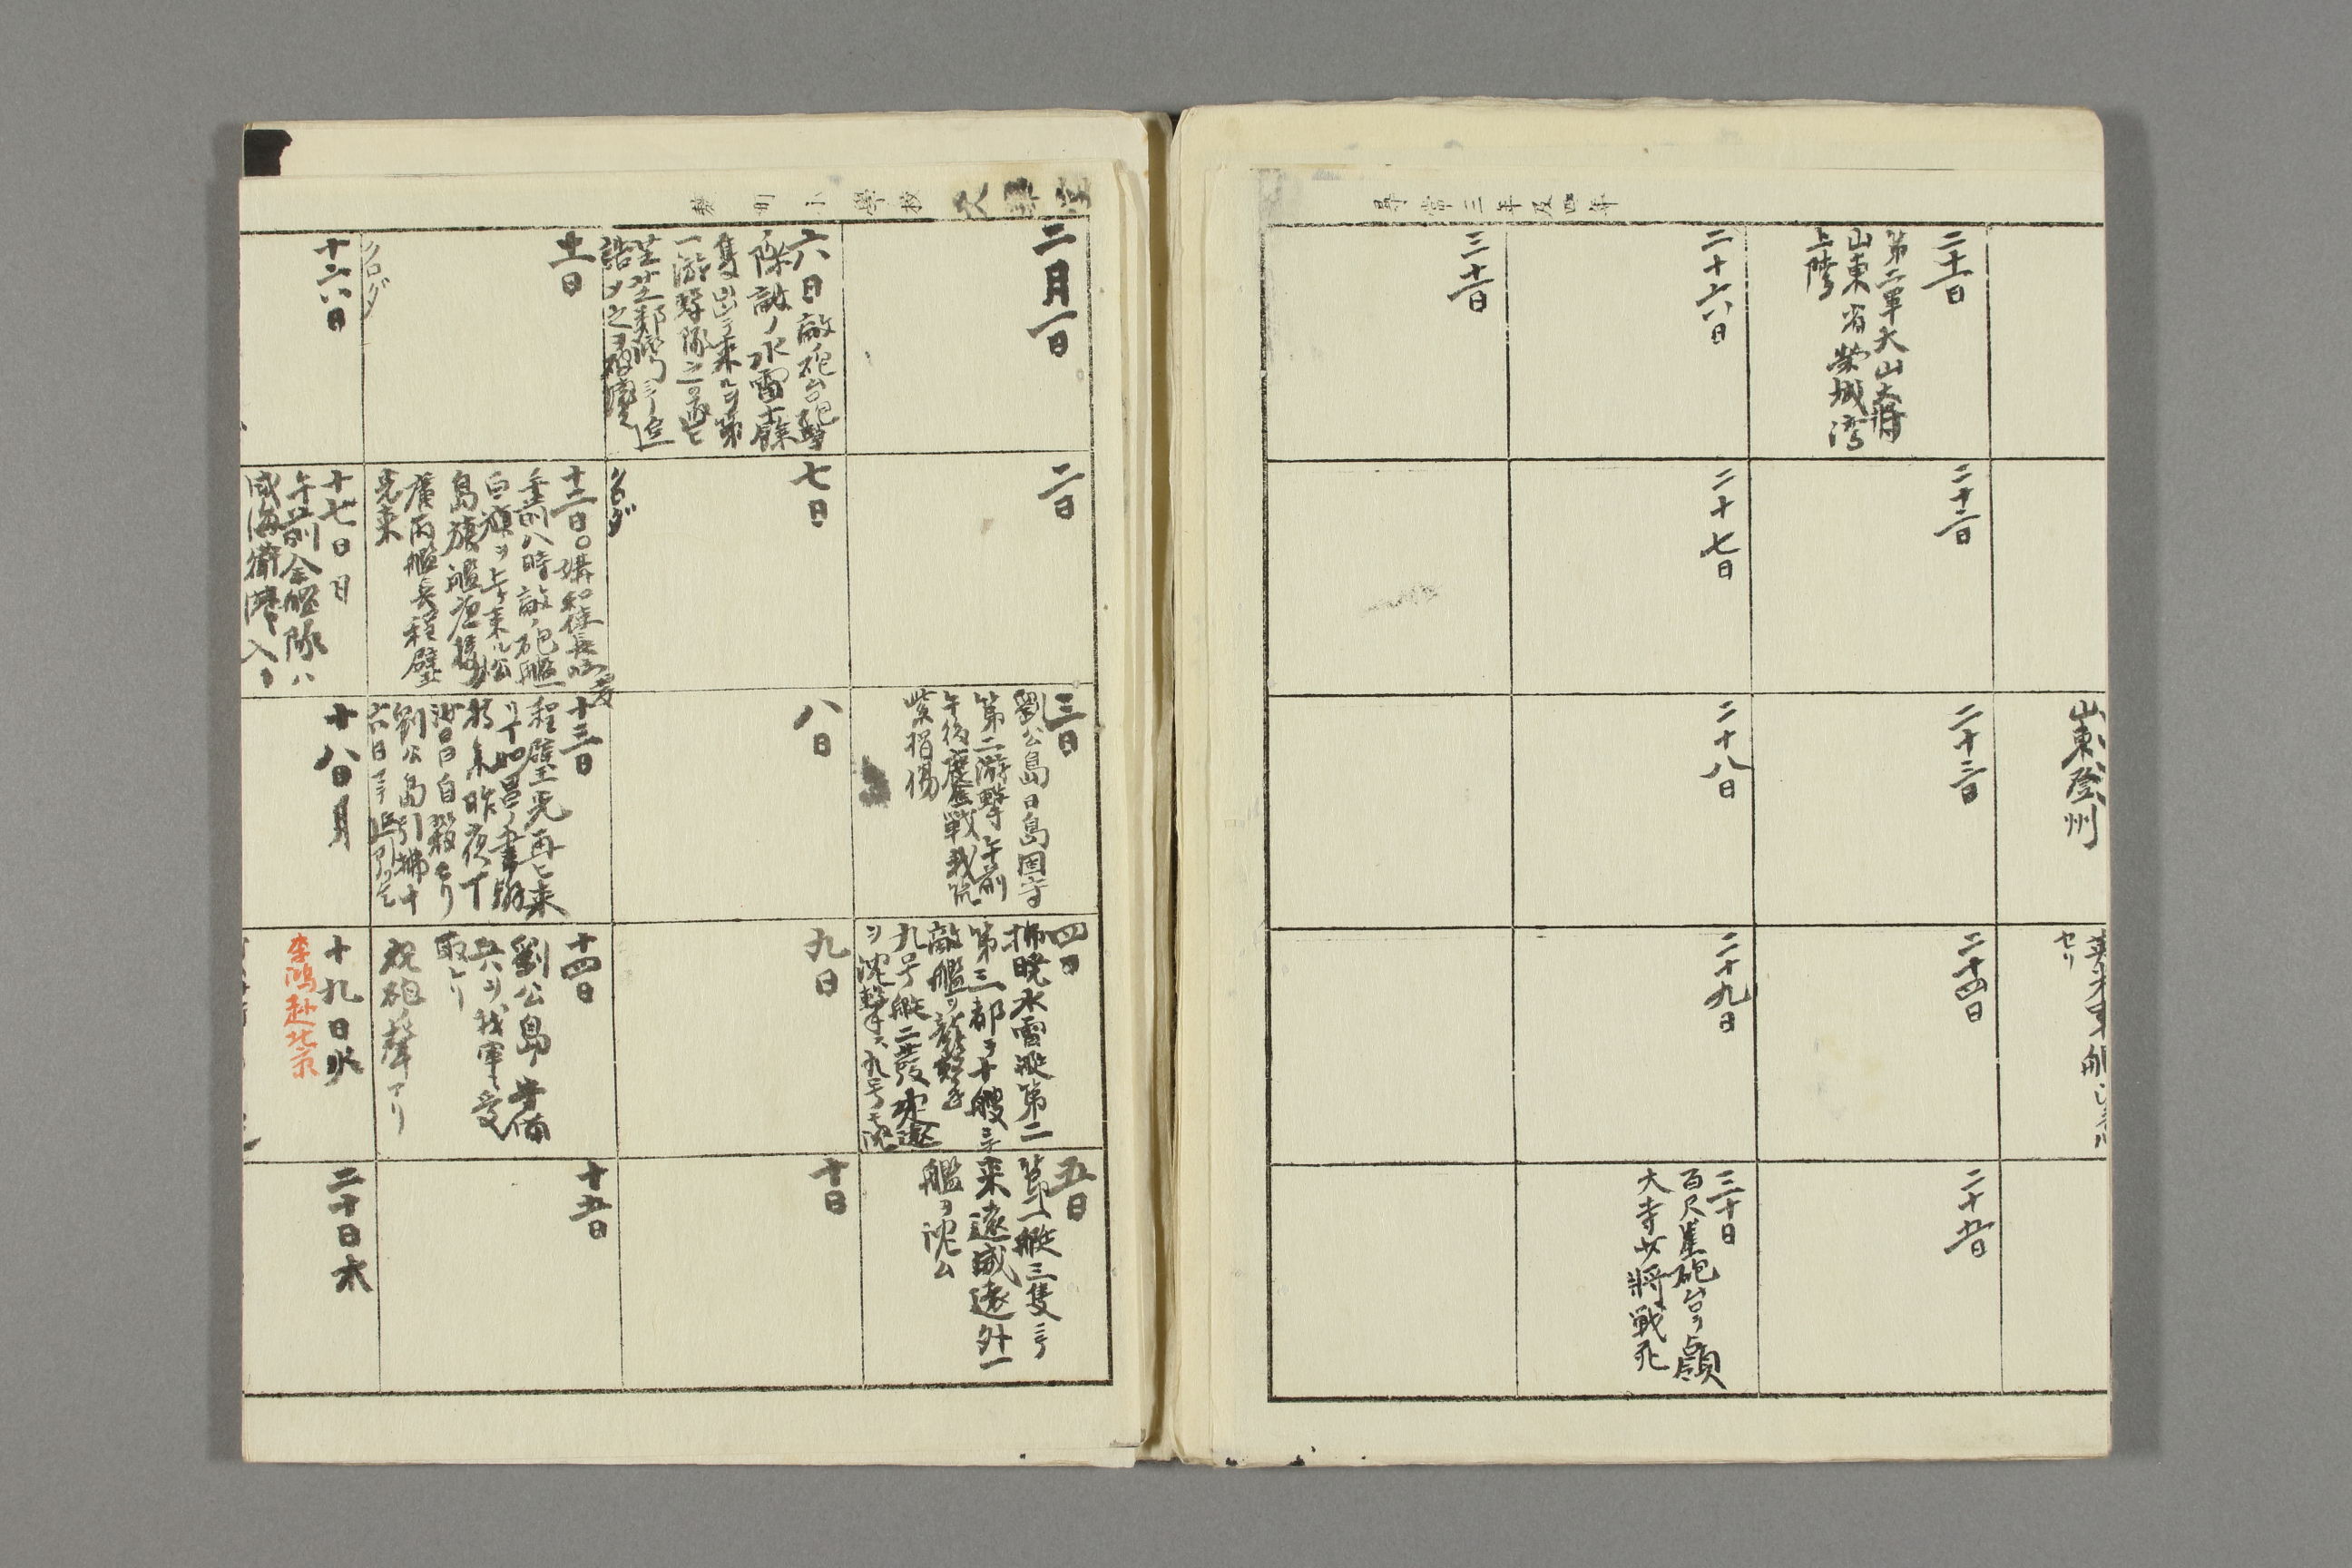 尋常三年及四年
山東登州
セリ
二十一日
第二軍大山大将
山東省栄城湾
上陸
二十二日
二十三日
二十四日
二十五日
二十六日
二十七日
二十八日
二十九日
三十日
百尺崖砲台ヲ占領
大寺少将戦死
三十一日
小學校
二月一日
二日
三日
劉公島日島固守
第二游撃午前
午後應戦我
紫損傷
四日
拂暁水雷艇第二
第三都ヲ十艘ニテ
敵艦ヲ襲撃
九号艇二発定遠
ヲ沈撃ス九号モ沈
五日
第一艇三隻ニテ
来遠威遠外一
艦ヲ沈ム
六日敵砲台砲撃
際敵ノ水雷十餘
隻出テ来ルヲ第
一游撃隊之ヲ
七日
クロダ
八日
九日
十日
十一日
クロダ
十二日
午前八時敵ノ砲艦一
白旗ヲ上ケ来ル
島旗艦
廣丙艦長程璧
光来
十三日
程璧光再ヒ来
リ丁汝昌ノ書翰
持来昨夜丁
汝昌自殺セリ
劉公島引拂十
六日マテ
十四日
劉公島守備
兵ヲ我軍受
取レリ
祝砲ノ聲アリ
十五日
十六日
十七日 日
午前全艦隊ハ
威海衛港ヘ入ル
十八日 月
十九日 火
李鴻赴北京
二十日 水